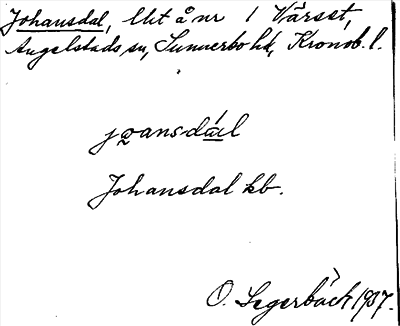 Johansdal, lht å nr 1 Värset,
Angelstads sn, Sunnerbo hd, Kronob. l.
jo̰ansdá̲l
Johansdal kb.
O. Segerbäck 1937.